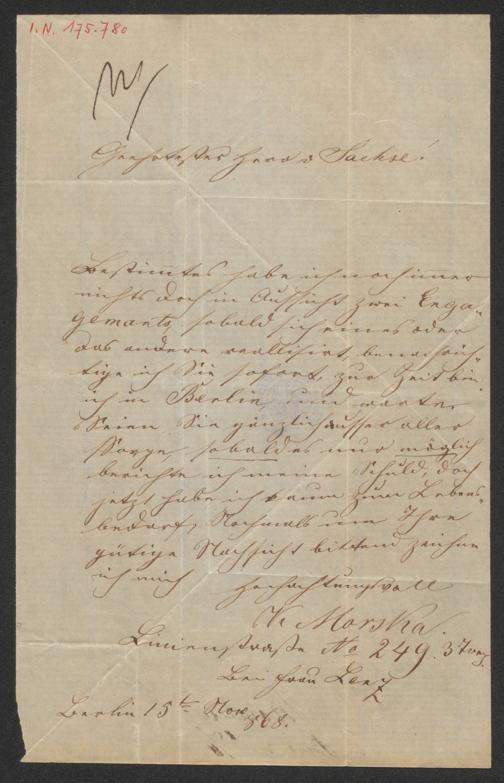 I.N. 175.780
Geehrtester Herr v Sachse!
Bestimmtes habe ich noch immer
nichts doch in Aussicht zwei Enga-
gemants, sobald sich eines oder
das andere reallisirt, benachrich-
tige ich Sie sofort, zur Zeit bin
ich in Berlin, und warte.
Seien Sie gänzlich ausser aller
Sorge sobald es nur möglich
berichte ich meine Schuld, doch
jetzt habe ich kaum zum Lebens-
bedarf, Nochmals um Ihre
gütige Nachsicht bittend zeichne
ich mich hochachtungsvoll
Morska.
Linienstraße No 249. 3
Bei Frau
Berlin 15te Nov. 868.